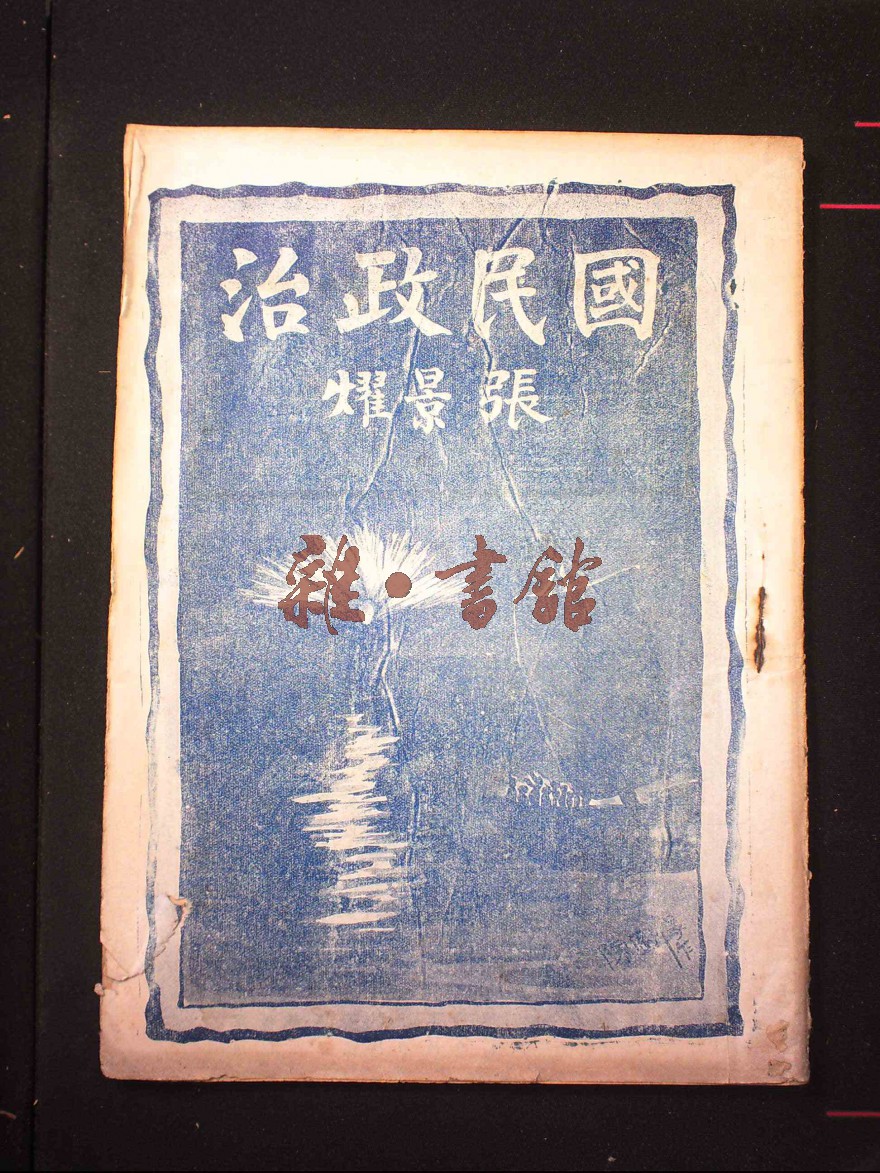 國民政治
張景燿
雜·書館